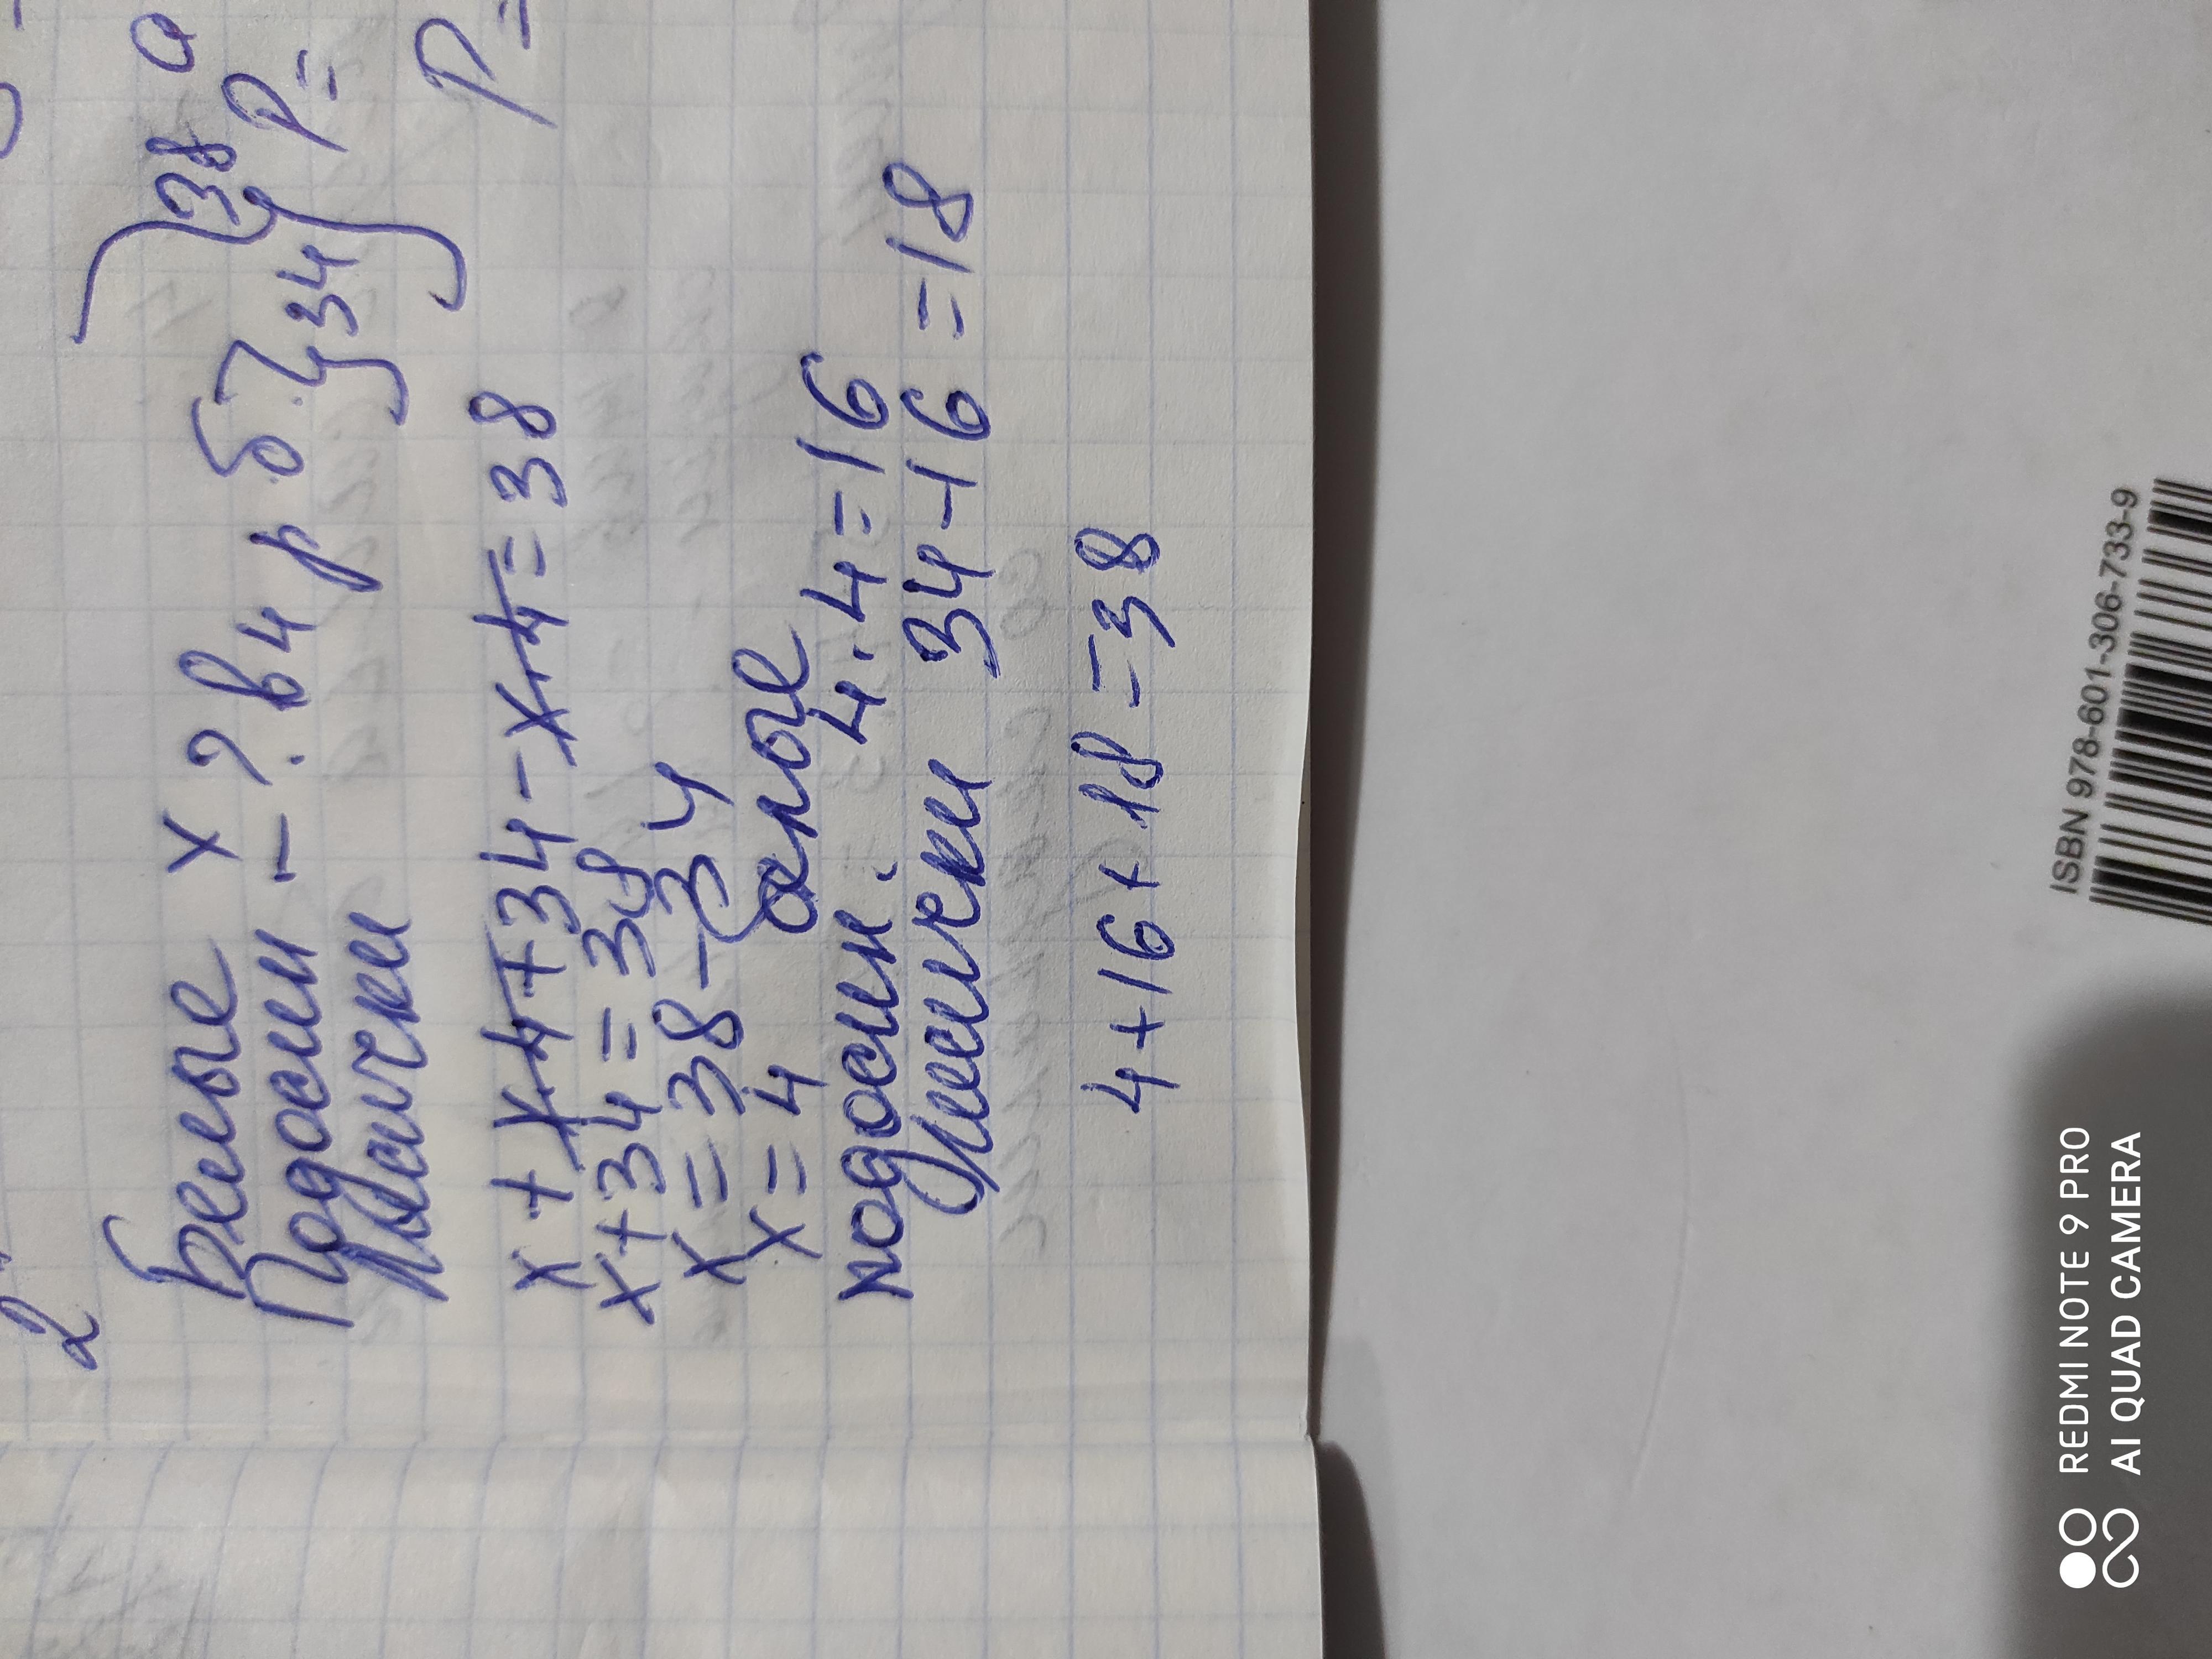 2
Белые х
Подоси - ? в 4 р б. } 34 } 38
Лисички ?
х + х·4 + 34 - х·4 = 38
х + 34 = 38
х = 38 - 34
х = 4 белые
подоси. 4·4=16
Лисички 34-16=18
4+16+18=38
P=
P=
ISBN 978-601-306-733-9
REDMI NOTE 9 PRO
AI QUAD CAMERA